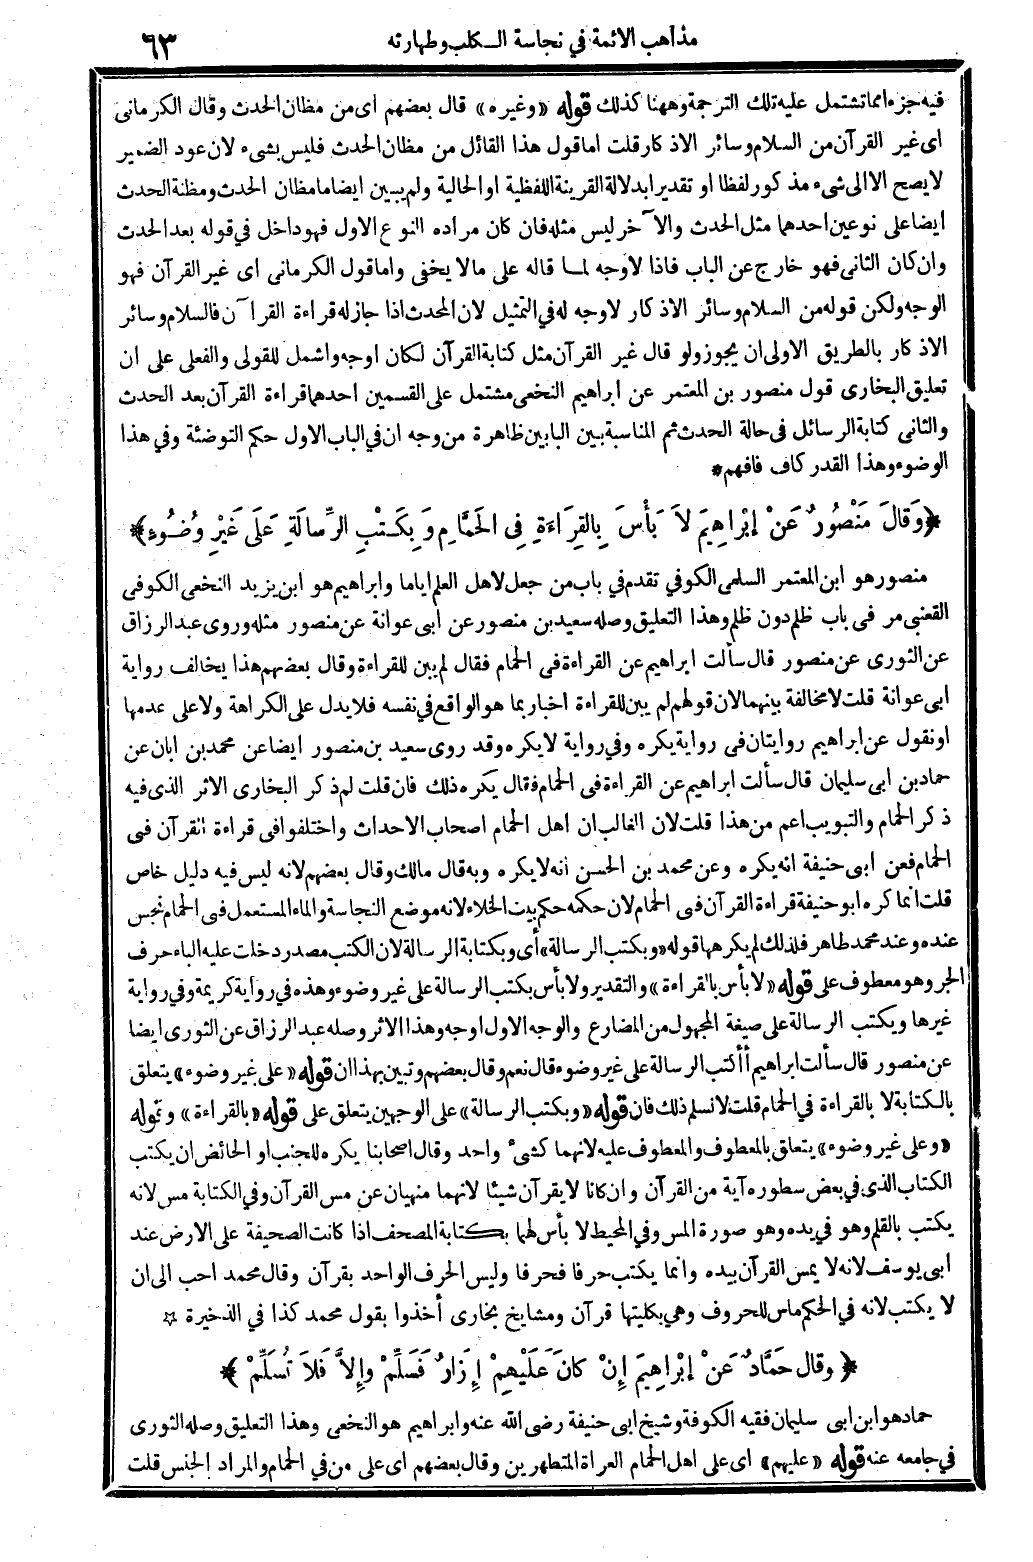 مذاهب الائمة في نجاسة الكلب وطهارته ٦٣
فيه جزء مما تشتمل عليه تلك الترجمة وههنا كذلك قوله «وغيره» قال بعضهم اى من مظان الحدث وقال الكرمانى
اى غير القرآن من السلام وسائر الاذكار قلت اما قول هذا القائل من مظان الحدث فليس بشىء لان عود الضمير
لا يصح الا الى شىء مذكور لفظا او تقديرا بدلالة القرينة اللفظية او الحالية ولم يبين ايضا ما مظان الحدث ومظنة الحدث
ايضا على نوعين احدهما مثل الحدث والآخر ليس مثله فان كان مراده النوع الاول فهو داخل في قوله بعد الحدث
وان كان الثانى فهو خارج عن الباب فاذا لا وجه لما قاله على ما لا يخفى واما قول الكرمانى اى غير القرآن فهو
الوجه ولكن قوله من السلام وسائر الاذكار لا وجه له في التمثيل لان المحدث اذا جاز له قراءة القرآن فالسلام وسائر
الاذكار بالطريق الاولى ان يجوز ولو قال غير القرآن مثل كتابة القرآن لكان اوجه واشمل للقولى والفعلى على ان
تعليق البخارى قول منصور بن المعتمر عن ابراهيم النخعى مشتمل على القسمين احدهما قراءة القرآن بعد الحدث
والثانى كتابة الرسائل فى حالة الحدث ثم المناسبة بين البابين ظاهرة من وجه ان في الباب الاول حكم التوضئة وفي هذا
الوضوء وهذا القدر كاف فافهم *
﴿وَقَالَ مَنْصُورٌ عَنْ إِبْرَاهِيمَ لاَ بَأْسَ بِالقِرَاءَةِ فِى الحَمَّامِ وَبِكَتْبِ الرِّسالَةِ عَلَى غَيْرِ وُضُوءٍ﴾
منصور هو ابن المعتمر السلمى الكوفي تقدم في باب من جعل لاهل العلم اياما وابراهيم هو ابن يزيد النخعى الكوفى
القعنبى مر فى باب ظلم دون ظلم وهذا التعليق وصله سعيد بن منصور عن ابى عوانة عن منصور مثله وروى عبد الرزاق
عن الثورى عن منصور قال سألت ابراهيم عن القراءة فى الحمام فقال لم يبن للقراءة وقال بعضهم هذا يخالف رواية
ابى عوانة قلت لا مخالفة بينهما لان قولهم لم يبن للقراءة اخبار بما هو الواقع في نفسه فلا يدل على الكراهة ولا على عدمها
او نقول عن ابراهيم روايتان فى رواية يكره وفي رواية لا يكره وقد روى سعيد بن منصور ايضا عن محمد بن ابان عن
حماد بن ابى سليمان قال سألت ابراهيم عن القراءة فى الحمام فقال يكره ذلك فان قلت لم ذكر البخارى الاثر الذى فيه
ذكر الحمام والتبويب اعم من هذا قلت لان الغالب ان اهل الحمام اصحاب الاحداث واختلفوا فى قراءة القرآن فى
الحمام فعن ابى حنيفة انه يكره وعن محمد بن الحسن أنه لا يكره وبه قال مالك وقال بعضهم لانه ليس فيه دليل خاص
قلت انما كره ابو حنيفة قراءة القرآن فى الحمام لان حكمه حكم بيت الخلاء لانه موضع النجاسة والماء المستعمل فى الحمام نجس
عنده وعند محمد طاهر فلذلك لم يكرهها قوله «وبكتب الرسالة» أى وبكتابة الرسالة لان الكتب مصدر دخلت عليه الباء حرف
الجر وهو معطوف على قوله «لا بأس بالقراءة» والتقدير ولا بأس بكتب الرسالة على غير وضوء وهذه في رواية كريمة وفي رواية
غيرها ويكتب الرسالة على صيغة المجهول من المضارع والوجه الاول اوجه وهذا الاثر وصله عبد الرزاق عن الثورى ايضا
عن منصور قال سألت ابراهيم أأكتب الرسالة على غير وضوء قال نعم وقال بعضهم وتبين بهذا ان قوله «على غير وضوء» يتعلق
بالكتابة لا بالقراءة في الحمام قلت لا نسلم ذلك فان قوله «وبكتب الرسالة» على الوجهين يتعلق على قوله «بالقراءة» وقوله
«وعلى غير وضوء» يتعلق بالمعطوف والمعطوف عليه لانهما كشىء واحد وقال اصحابنا يكره للجنب او الحائض ان يكتب
الكتاب الذى في بعض سطوره آية من القرآن وان كانا لا يقرآن شيئا لانهما منهيان عن مس القرآن وفي الكتابة مس لانه
يكتب بالقلم وهو في يده وهو صورة المس وفي المحيط لا بأس لهما بكتابة المصحف اذا كانت الصحيفة على الارض عند
ابى يوسف لانه لا يمس القرآن بيده وانما يكتب حرفا فحرفا وليس الحرف الواحد بقرآن وقال محمد احب الى ان
لا يكتب لانه في الحكم ماس للحروف وهى بكليتها قرآن ومشايخ بخارى أخذوا بقول محمد كذا في الذخيرة ☆
﴿وقال حَمَّادٌ عَنْ إِبْرَاهِيمَ إِنْ كانَ عَلَيْهِمْ إِزَارٌ فَسَلِّمْ وإِلاَّ فَلاَ تُسَلِّمْ﴾
حماد هو ابن ابى سليمان فقيه الكوفة وشيخ ابى حنيفة رضى الله عنه وابراهيم هو النخعى وهذا التعليق وصله الثورى
في جامعه عنه قوله «عليهم» اى على اهل الحمام العراة المتطهرين وقال بعضهم اى على من في الحمام والمراد الجنس قلت